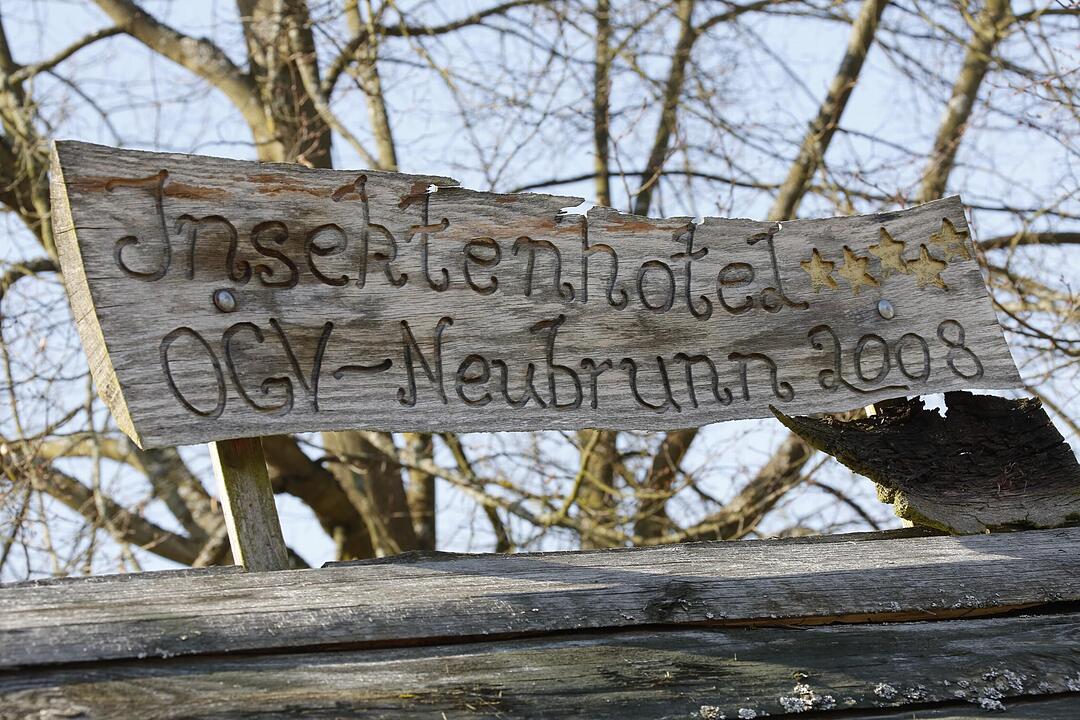 Insektenhotel
OGV-Neubrunn 2008